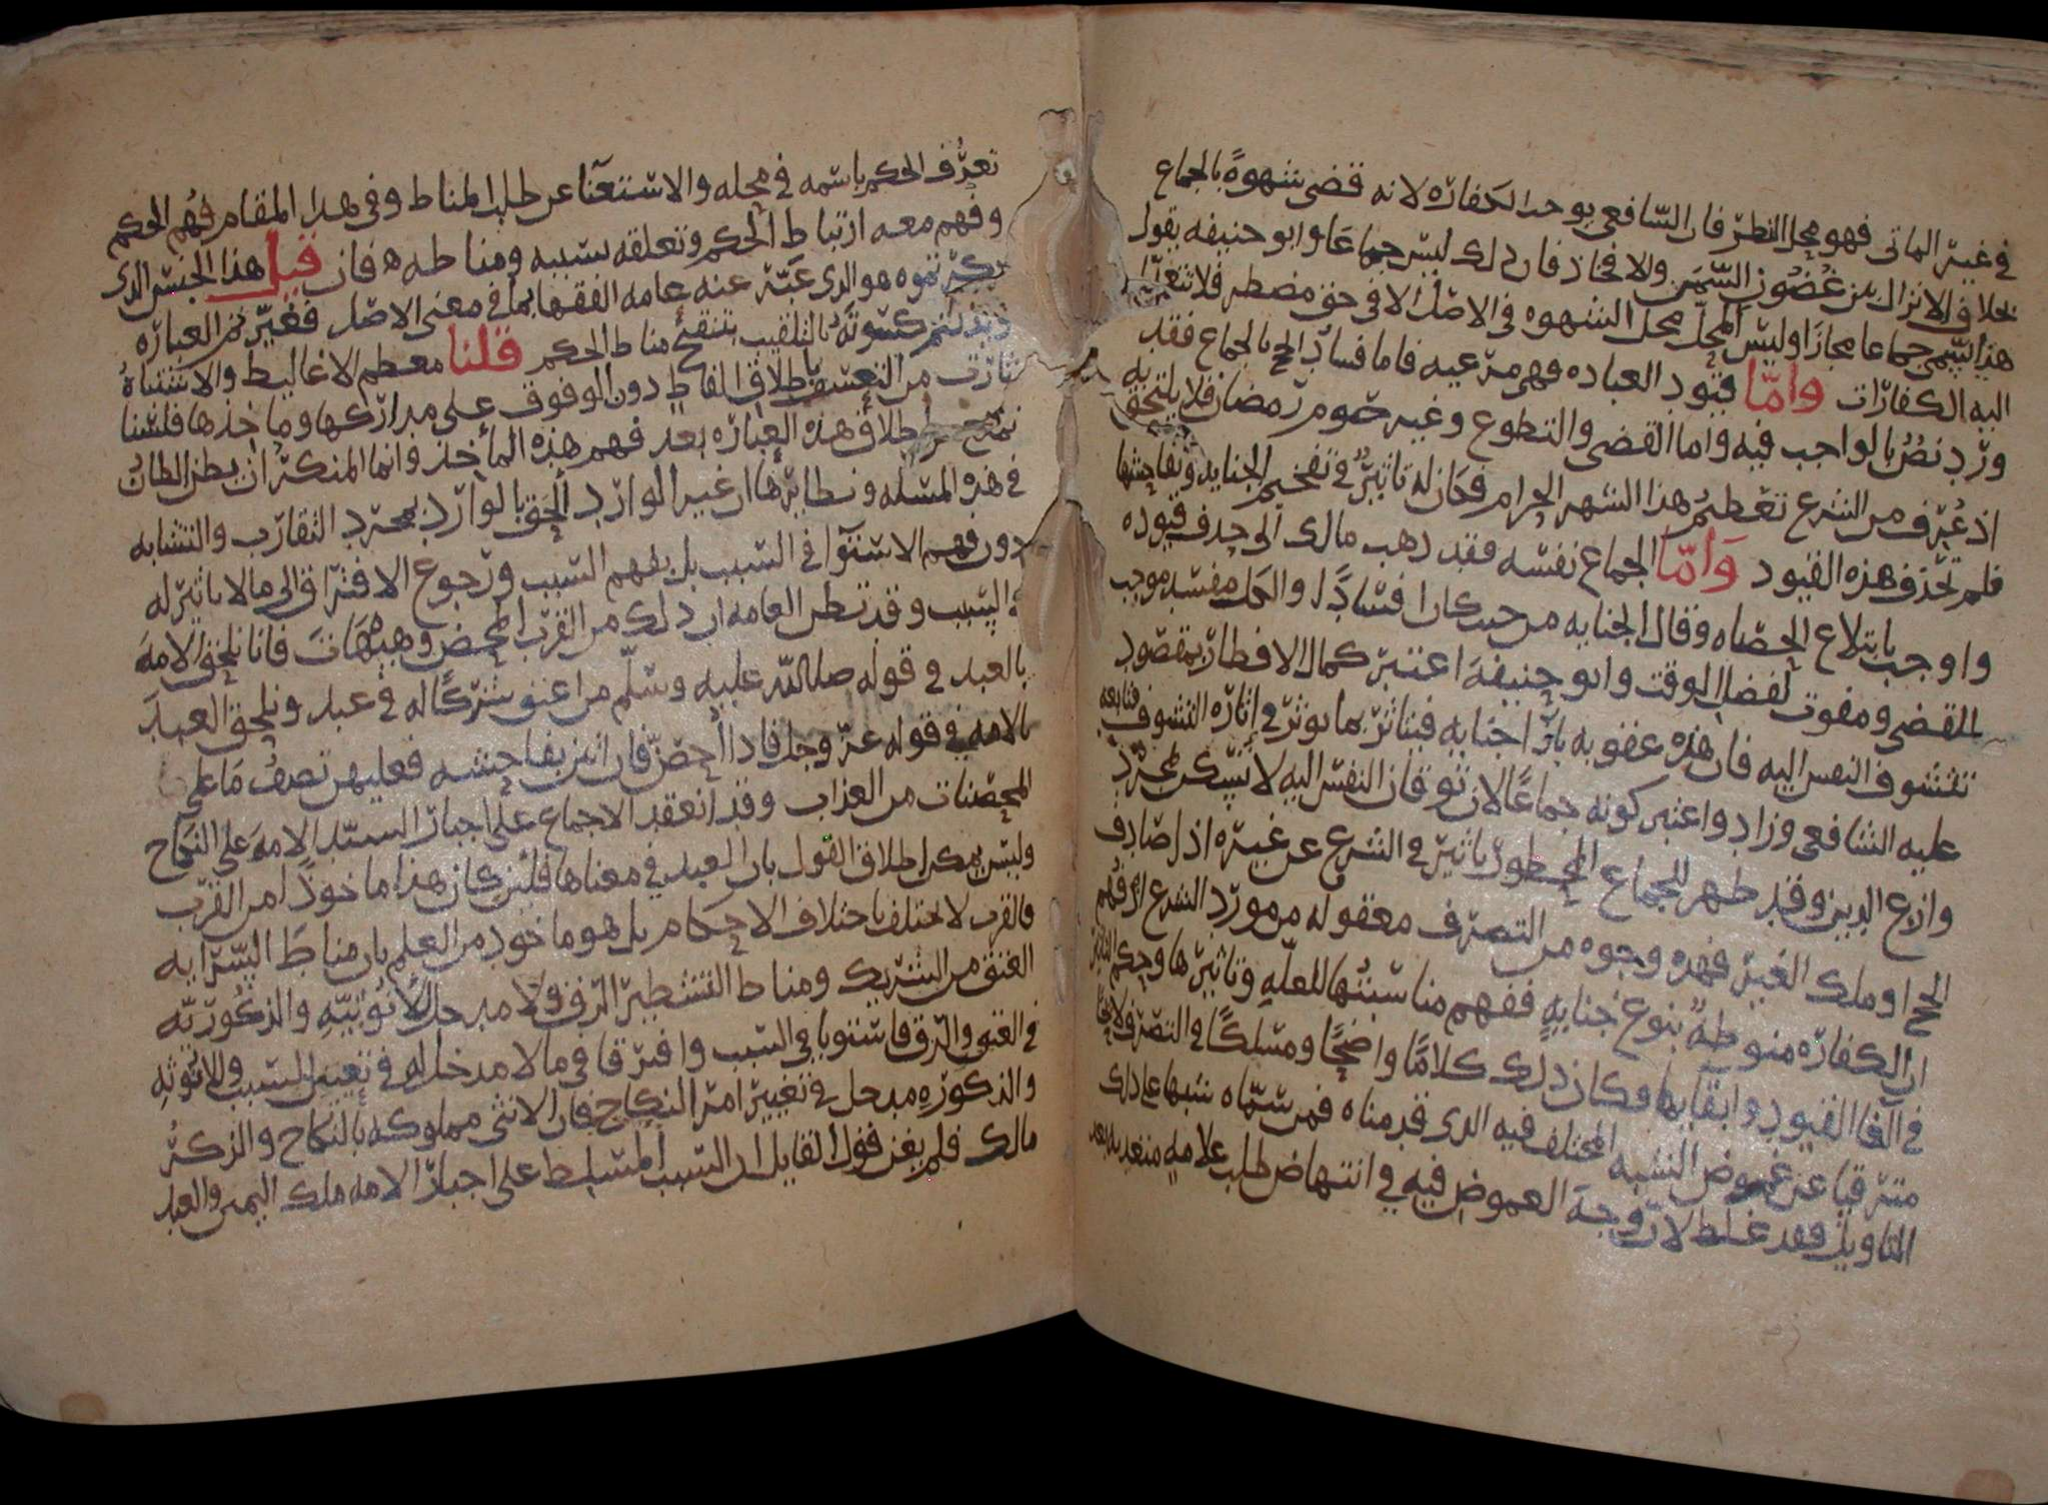 في غير الماتى فهو محل النظر فان الشافعي يوجب الكفاره لانه قضى شهوة بالجماع
بخلاف الانزال بين غضون السمين والافخاذ فان ذلك ليس جماعا وابو حنيفه يقول
هذا يسمى جماعا مجازا وليس المحل محل الشهوه في الاصل الا في حق مضطر فلا
اليه الكفارات واما قيود العباده فهي مرعيه فاما فساد الحج بالجماع فقد
ورد نص بالواجب فيه واما القضى والتطوع وغير صوم رمضان فلا يلتحق به
اذ عرف من الشرع تعظيم هذا الشهر الحرام فكان له تاثير في تفخيم الجنايه وتفاحشها
فلم تحذف هذه القيود واما الجماع نفسه فقد ذهب مالك الى حذف قيوده
واوجب بابتلاع الحصاه وقال الجنايه من حيث كان افسادا والكل مفسد موجب
للقضى ومفوت لفضل الوقت وابو حنيفة اعتبر كمال الافطار بمقصود
تتشوف النفس اليه فان هذه عقوبه بازا جنايه فيتاثر بما يوثر في اثاره التشوف فتابعه
عليه الشافعي وزاد واعتبر كونه جماعا لان توقان النفس اليه لا ينكسر بمجرد
وازع الدين وقد ظهر للجماع المحظور تاثير في الشرع عن غيره اذا صادف
الحج او ملك الغير فهذه وجوه من التصرف معقوله من مورد الشرع اذ فهم
ان الكفاره منوطة بنوع جناية ففهم مناسبتها للعلة وتاثيرها وحكم
في الغا القيود وابقايها فكان ذلك كلاما واضحا ومسلكا في التصرف لائحا
مترقيا عن غموض الشبه المختلف فيه الذي قدمناه فمن سماه شبها على ذلك
التاويل فقد غلط لان وجه الغموض فيه في انتهاض طلب علامه متعديه بعد
تعرف الحكم باسمه في محله والاستغنا عن طلب المناط وفي هذا المقام فهم الحكم
وفهم معه ارتباط الحكم وتعلقه بسببه ومناطه فان قيل هذا الجنس الذي
ذكرتموه هو الذي عبر عنه عامه الفقها بما في معنى الاصل فغيرتم العباره
كسوته بالتلقيب بتنقيح مناط الحكم قلنا معظم الاغاليط والاشتباه
ثارت من التعسف باطلاق الفاظ دون الوقوف على مداركها وماخذها فلسنا
نمنع من اطلاق هذه العباره بعد فهم هذه المأخذ وانما المنكر ان يظن الظان
في هذه المسله ونظايرها ان غير الوارد ألحق بالوارد بمجرد التقارب والتشابه
دون فهم الاستوا في السبب بل بفهم السبب ورجوع الافتراق الى ما لا تاثير له
في السبب وقد تظن العامه ان ذلك من القرب المحض وهيهات فانا نلحق الامة
بالعبد في قوله صلى الله عليه وسلم من اعتق شركا له في عبد ونلحق العبد
بالامه في قوله عز وجل فاذا أحصن فان اتين بفاحشه فعليهن نصف ما على
المحصنات من العذاب وقد انعقد الاجماع على اجبار السيد الامة على النكاح
وليس يمكن اطلاق القول بان العبد في معناها فلئن كان هذا ماخوذا من القرب
فالقرب لا يختلف باختلاف الاحكام بل هو ماخوذ من العلم بان مناط السرايه
العتق من الشريك ومناط التشطير الرق ولا مدخل للأنوثية والذكوريه
في العتق والرق فاستويا في السبب وافترقا في ما لا مدخل له في تغيير السبب وللانوثه
والذكوره مدخل في تغيير امر النكاح فان الانثى مملوكه بالنكاح والذكر
مالك فلم يغن قول القايل ان السبب المسلط على اجبار الامه ملك اليمين والعبد